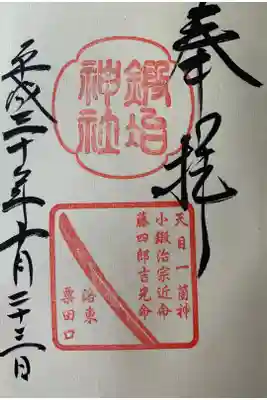 奉拝
鍛冶
神社
天目一箇神
小鍛治宗近命
藤四郎吉光命
洛東
粟田口
平成三十年十月二十三日